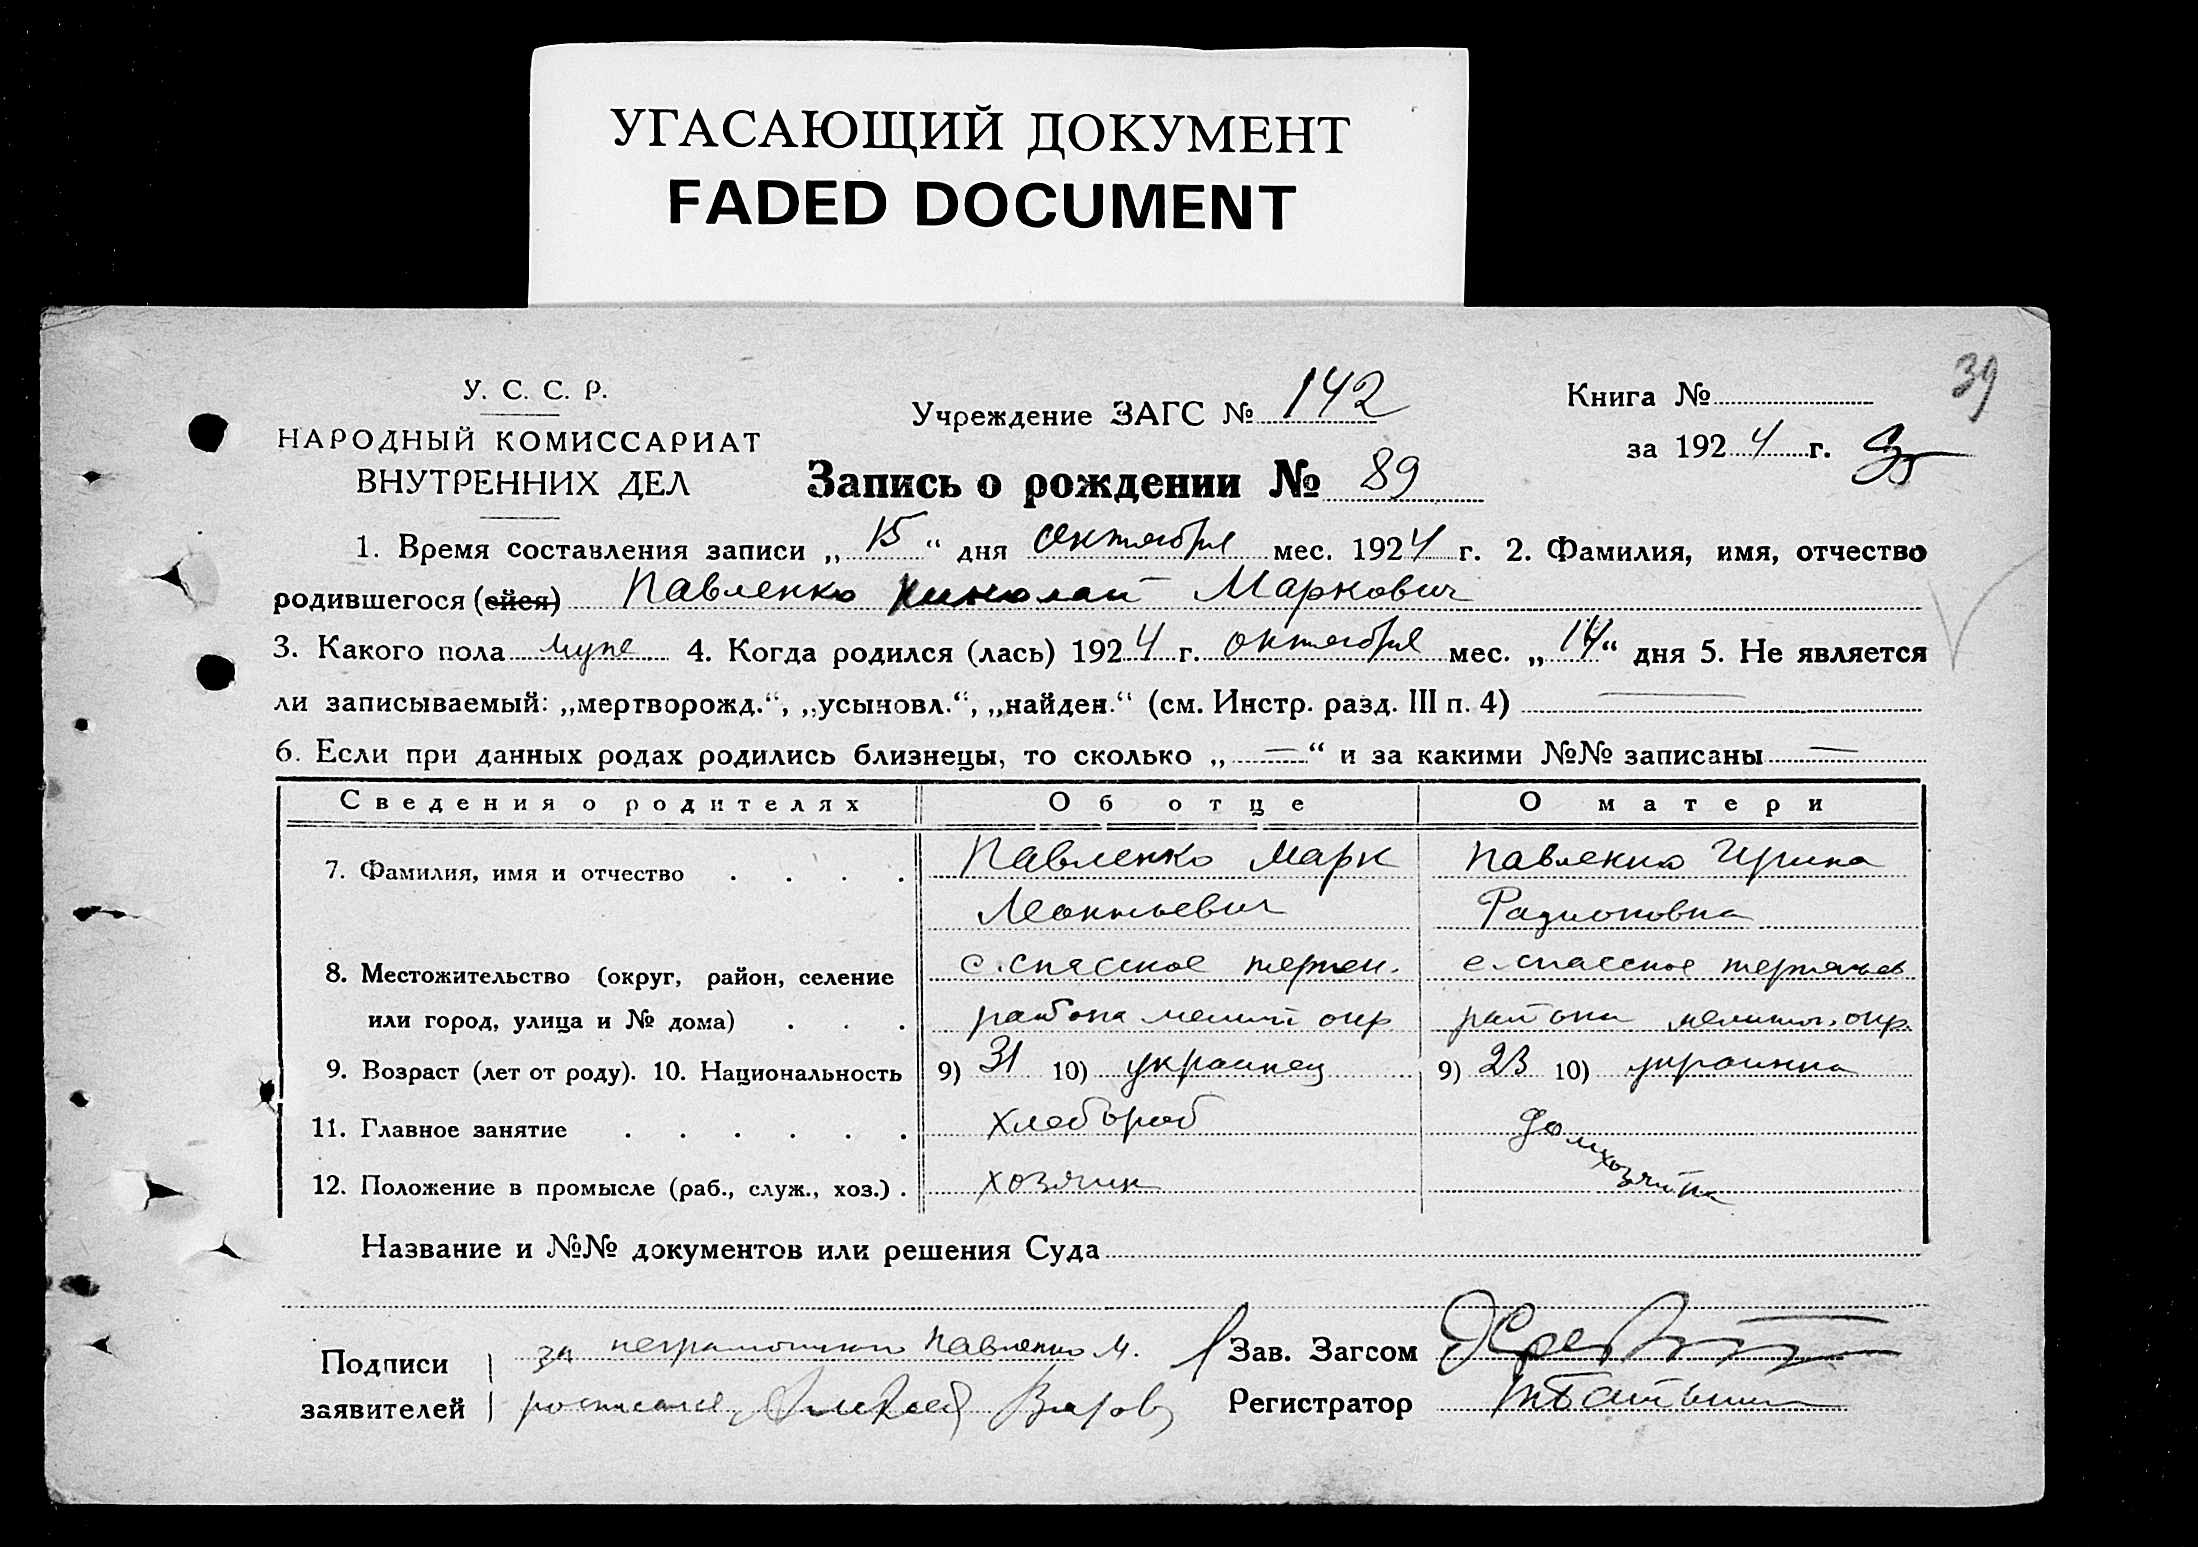 УГАСАЮЩИЙ ДОКУМЕНТ
FADED DOCUMENT
39
У. С. С. Р.
НАРОДНЫЙ КОМИССАРИАТ
ВНУТРЕННИХ ДЕЛ
Учреждение ЗАГС № 142
Книга №
за 1924 г.
Запись о рождении № 89
1. Время составления записи „15“ дня октября мес. 1924 г. 2. Фамилия, имя, отчество
родившегося (ейся) Павленко Николай Маркович
3. Какого пола муже 4. Когда родился (лась) 1924 г. октября мес. „14“ дня 5. Не является
ли записываемый: „мертворожд.“, „усыновл.“, „найден.“ (см. Инстр. разд. III п. 4) —
6. Если при данных родах родились близнецы, то сколько „—“ и за какими №№ записаны —
Сведения о родителях Об отце О матери
7. Фамилия, имя и отчество . . . . Павленко Марк Павленко Ирина
Леонтьевич Радионовна
8. Местожительство (округ, район, селение с. спасское терпен. с. спасское
или город, улица и № дома) . . . района мелит окр района мелитоп. окр.
9. Возраст (лет от роду). 10. Национальность 9) 31 10) украинец 9) 23 10) украинка
11. Главное занятие . . . . . . хлебороб домхозяйка
12. Положение в промысле (раб., служ., хоз.) . хозяин
Название и №№ документов или решения Суда
Подписи за неграмотного Павленко М.
заявителей росписался Алексей
Зав. Загсом
Регистратор